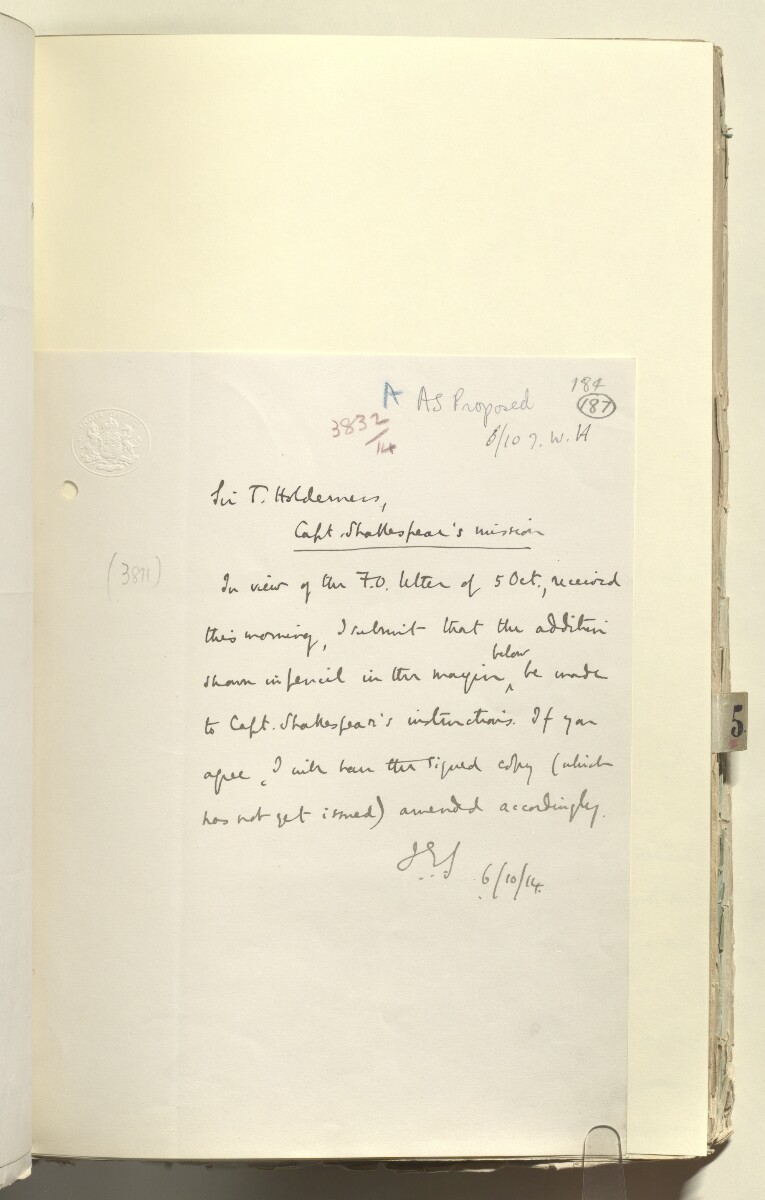 184
A As Proposed
187
3832
/14
6/10 T.W.H
Sir T. Holderness,
Capt. Shakespear's mission
(3811)
In view of the F.O. letter of 5 Oct., received
this morning, I submit that the addition
below
shown in pencil in the margin ‸ be made
to Capt. Shakespear's instructions. If you
agree, I will have the signed copy (which
has not yet issued) amended accordingly.
J.E.S
6/10/14.
5